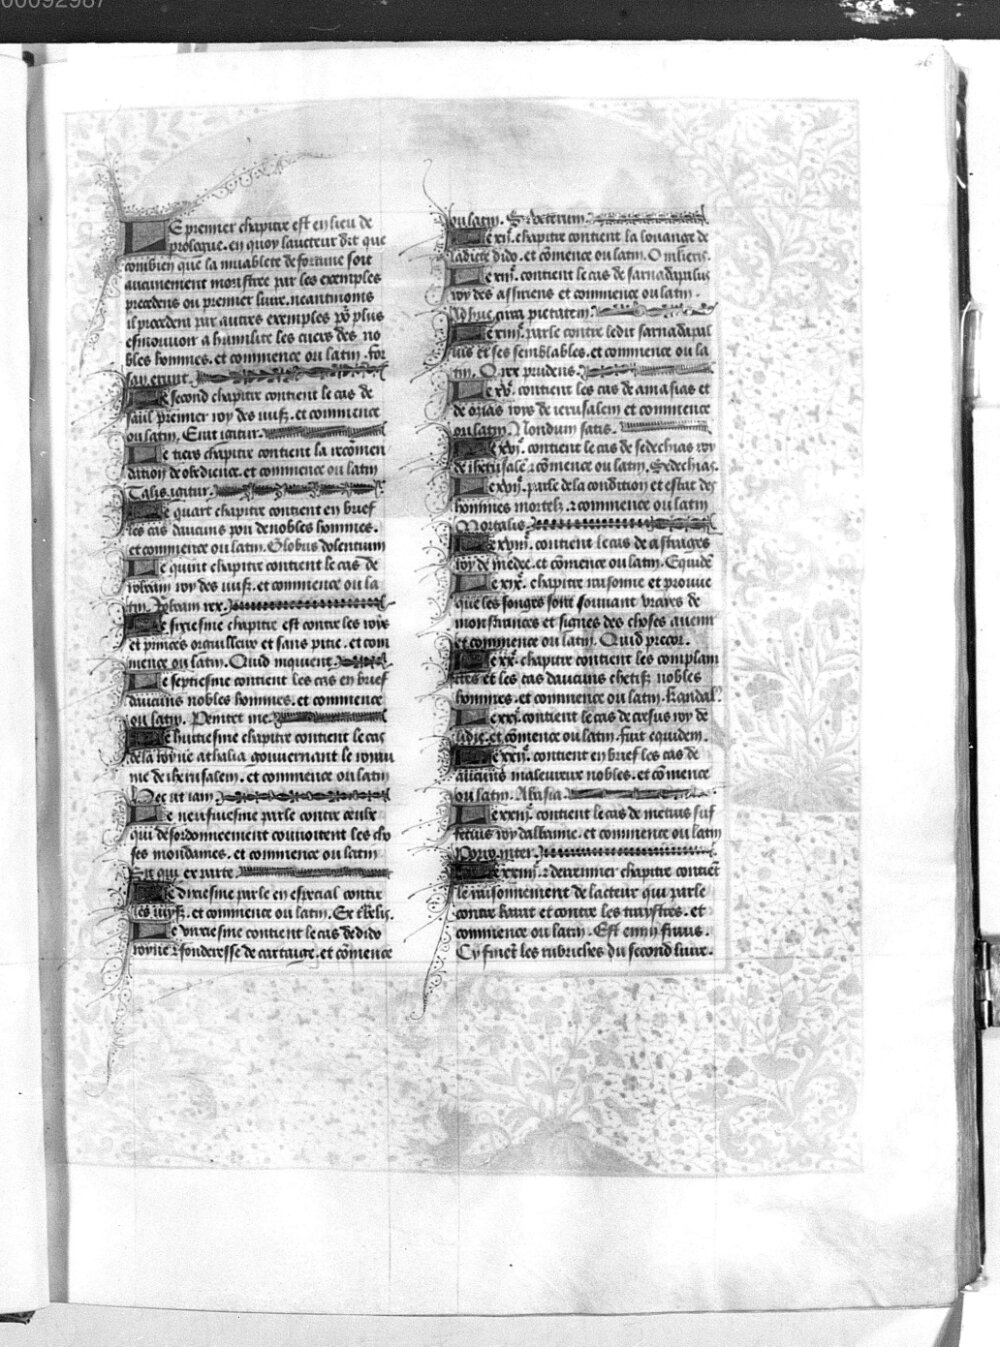 00092987
46
LE premier chapitre est en lieu de
prologue. en quoy laucteur dit que
combien que la muablete de fortune soit
aucunement monstree par les exemples
precedens ou premier liure. neantmoins
il procedera par autres exemples po² plus
esmouuoir a humilite les cuers des no
bles hommes. et commence ou latin. for
san erunt.
Le second chapitre contient le cas de
saul premier roy des iuifz. et commence
ou latin. Erut igitur.
Le tiers chapitre contient la recomen
dation de obedience. et commence ou latin
Talis igitur.
Le quart chapitre contient en brief
les cas daucuns pou de nobles hommes.
et commence ou latin. Globus dolentium
Le quint chapitre contient le cas de
roboam roy des iuifz. et commence ou la
tin. Roboam rex.
Le sixiesme chapitre est contre les roys
et princes orguilleux et sans pitie. et com
mence ou latin. Quid inquient.
Le septiesme contient les cas en brief
daucuns nobles hommes. et commence
ou latin. Penitet me.
Le huitiesme chapitre contient le cas
de la royne athalia gouuernant le royau
me de iherusalem. et commence ou latin
Nec ut iam.
Le neufuiesme parle contre ceulx
qui desordonneement couuoitent les cho
ses mondames. et commence ou latin
Sit qui ex parte.
Le dixiesme parle en especial contre
les iuyfz. et commence ou latin. Ex
Le vnziesme contient le cas de dido
royne ⁊ fonderesse de cartaige. et cōmence
ou latin.
Le xii͛. chapitre contient la louange de
ladicte dido. et cōmence ou latin. O mlieris.
Le xiii͛. contient le cas de sarnadapalus
roy des assiriens et commence ou latin.
Adhuc circa pietatem.
Le xiiii͛. parle contre ledit sarnadapal
lus et ses semblables. et commence ou la
tin. O rex prudens.
Le xv͛. contient les cas de amasias et
de ozias roys de ierusalem et commence
ou latin. Nondum satis.
Le xvj͛. contient le cas de sedechias roy
de iherusale ⁊ cōmence ou latin. Sedechias.
Le xvij͛. parle de la condition et estat des
hommes mortelz. ⁊ commence ou latin
Mortalis.
Le xviij͛. contient le cas de astraiges
roy de mede. et cōmence ou latin. Equidē
Le xix͛. chapitre raisonne et prouue
que les songes sont souuant vrayes de
monstrances et signes des choses auenir
et commence ou latin. Quid precor.
Le xx͛. chapitre contient les complain
ctes et les cas daucuns chetifz nobles
hommes. et commence ou latin. kandal².
Le xxi͛. contient le cas de cresus roy de
lidie. et cōmence ou latin. fuit equidem.
Le xxij͛. contient en brief les cas de
aucuns maleureux nobles. et cōmence
ou latin. Abasia
Le xxiij͛. contient le cas de metius suf
fetius roy dalbanie. et commence ou latin
Porro inter.
Le xxiiij͛. ⁊ derrenier chapitre contiēt
le raisonnement de lacteur qui parle
contre barat et contre les traystres. et
commence ou latin. Est enim fraus.
Cy finēt les rubriches du second liure.